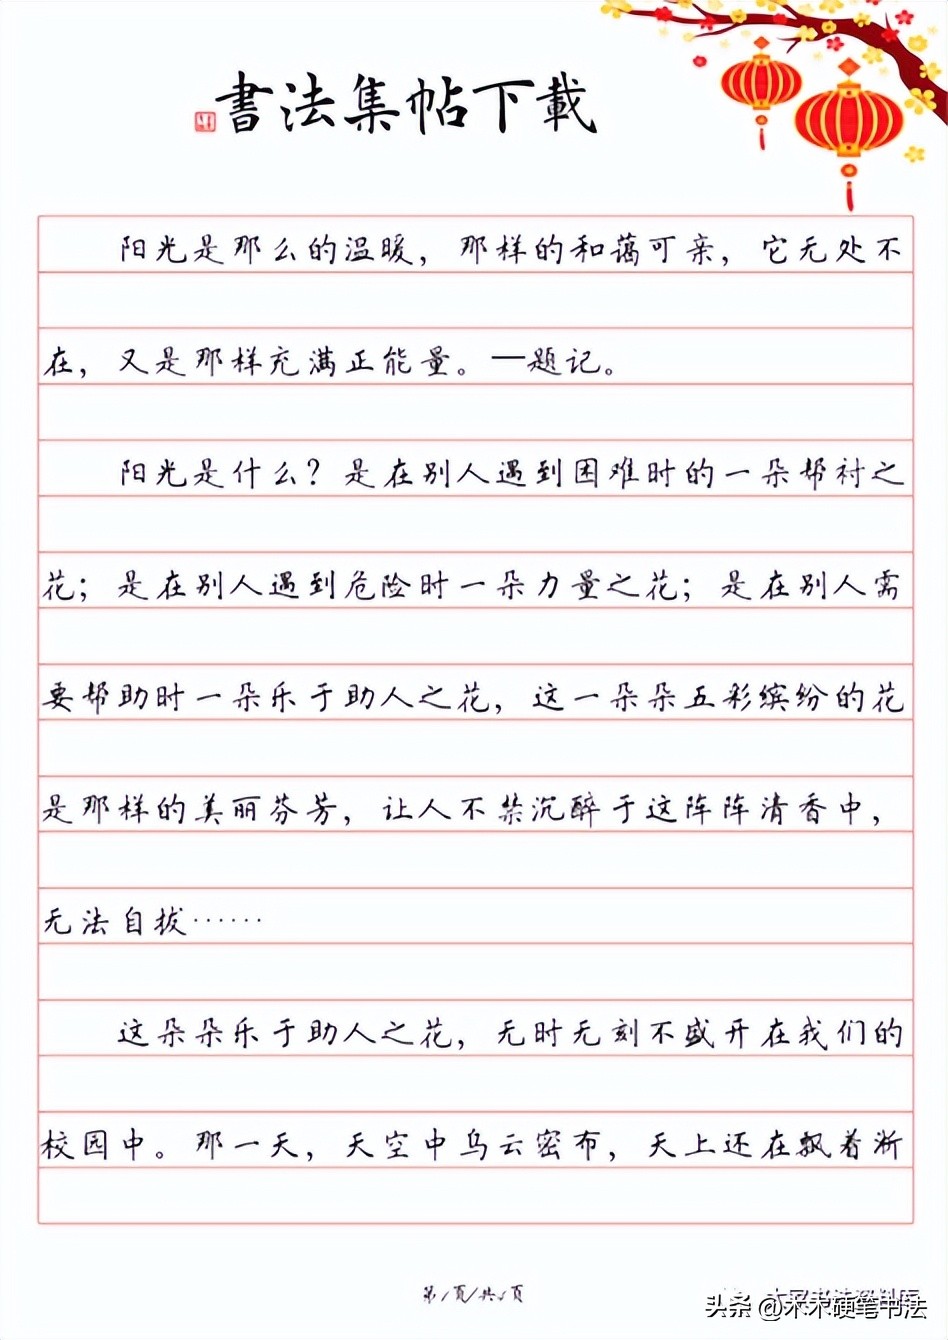 書法集帖下載
阳光是那么的温暖，那样的和蔼可亲，它无处不
在，又是那样充满正能量。—题记。
阳光是什么？是在别人遇到困难时的一朵帮衬之
花；是在别人遇到危险时一朵力量之花；是在别人需
要帮助时一朵乐于助人之花，这一朵朵五彩缤纷的花
是那样的美丽芬芳，让人不禁沉醉于这阵阵清香中，
无法自拔……
这朵朵乐于助人之花，无时无刻不盛开在我们的
校园中。那一天，天空中乌云密布，天上还在飘着淅
第1页/共5页
头条 @木木硬笔书法